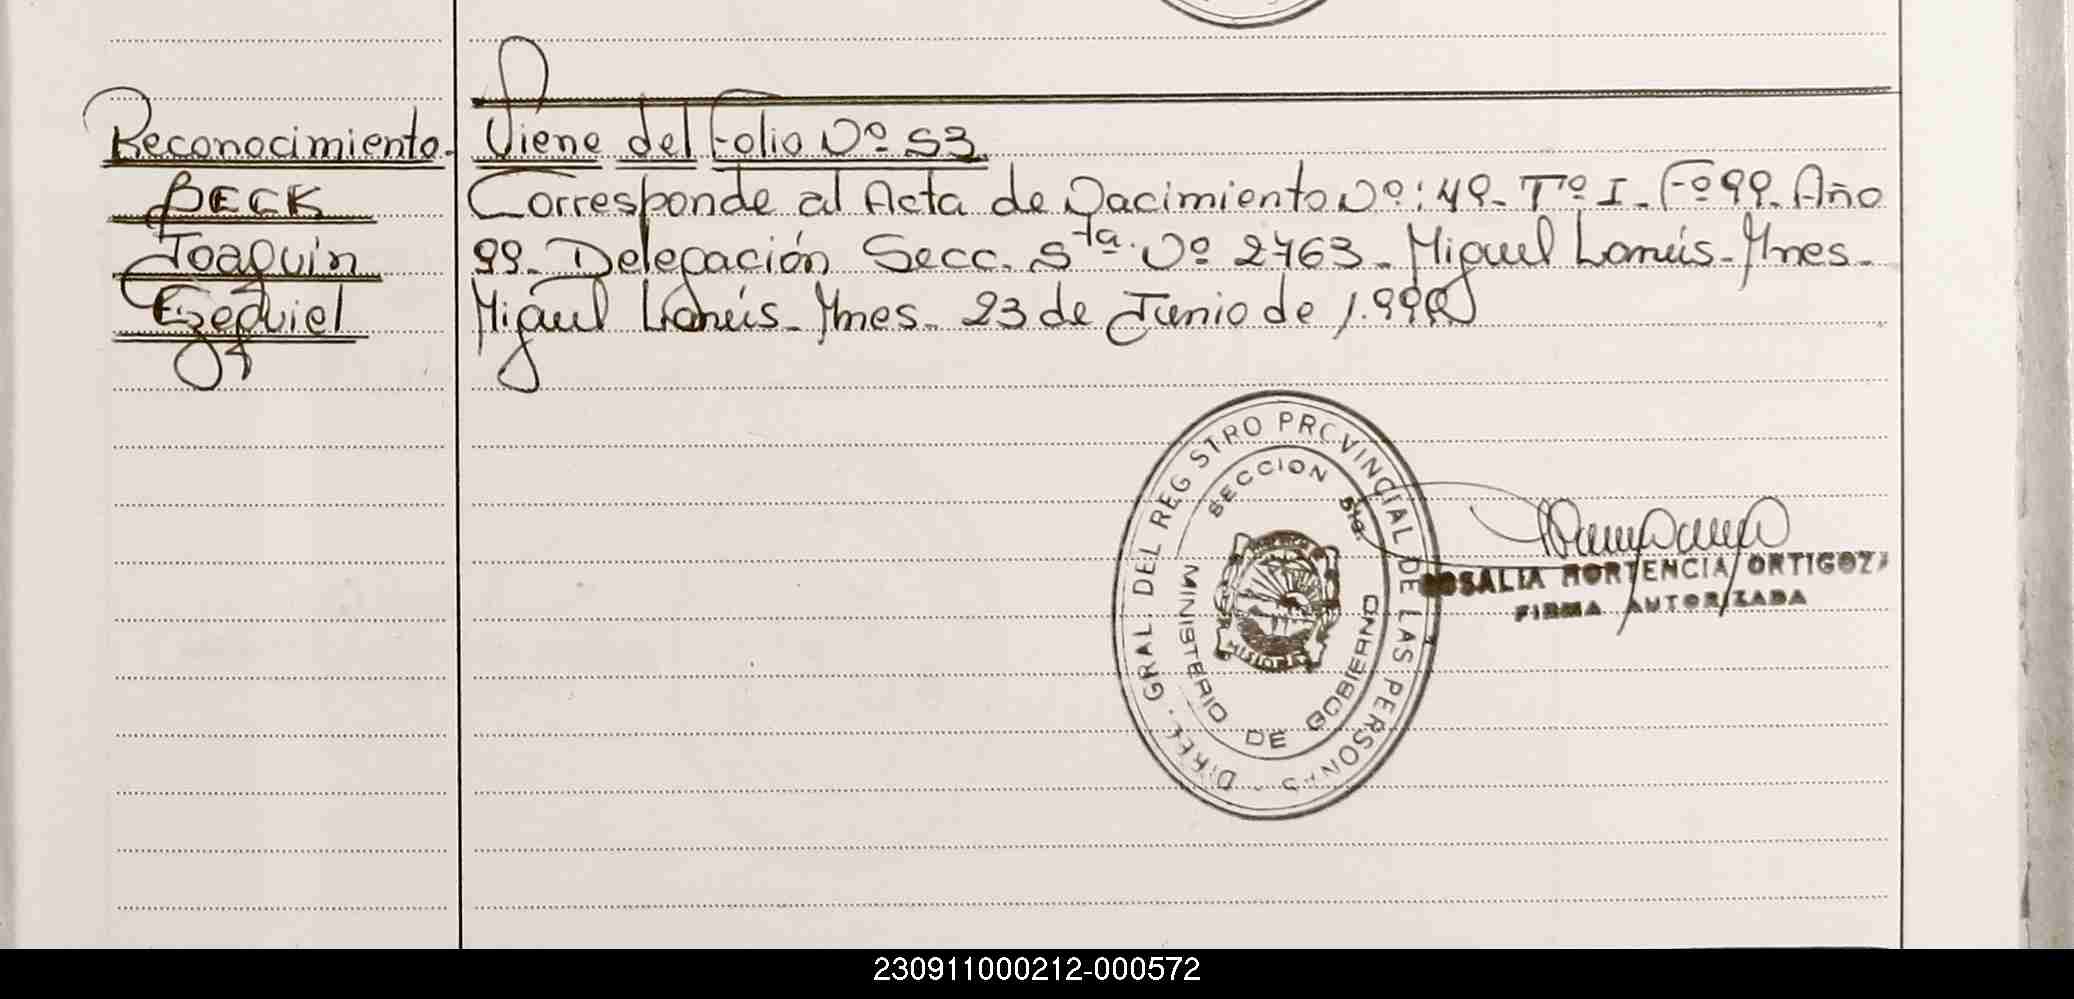 Reconocimiento.
BECK
Joaquin
Ezequiel
Viene del Folio Nº 53
Corresponde al Acta de Nacimiento Nº: 49. Tº I. Fº 99. Año
99. Delegación Secc. 5ta. Nº 2763. Miguel Lanús. Mnes.
Miguel Lanús. Mnes. 23 de Junio de 1.999
DIREC. GRAL DEL REGISTRO PROVINCIAL DE LAS PERSONAS
SECCION 5ta.
MINISTERIO DE GOBIERNO
MISIONES
ROSALIA HORTENCIA ORTIGOZA
FIRMA AUTORIZADA
230911000212-000572